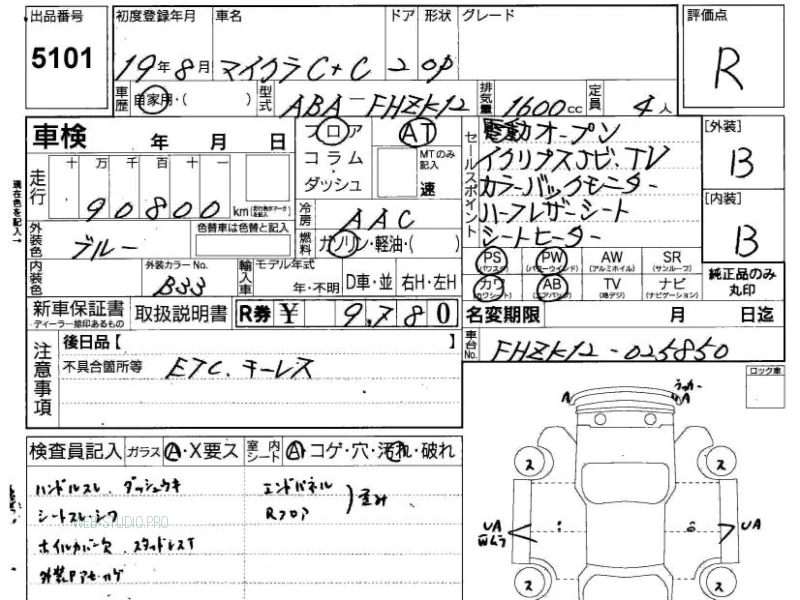 出品番号 初度登録年月 車名 ドア 形状 グレード 評価点
5101 19年8月 マイクラC+C 2 OP R
車歴 自家用・( ) 型式 ABA-FHZK12 排気量 1600cc 定員 4人
車検 年 月 日 フロア AT セールスポイント 電動オープン [外装]
走行 十 万 千 百 十 一 コラム・ MTのみ記入 イクリプスナビ.TV B
90800 km ダッシュ 速 カラーバックモニター
現在色を記入→ 冷房 AAC ハーフレザーシート [内装]
外装色 ブルー 色替車は色替と記入 燃料 ガソリン・軽油・( ) シートヒーター B
内装色 外装カラーNo. B33 輸入車 モデル年式 年・不明 D車・並 右H・左H
PS (パワステ) PW (パワーウインド) AW (アルミホイル) SR (サンルーフ)
カワ (カワシート) AB (エアバッグ) TV (地デジ) ナビ (ナビゲーション) 純正品のみ丸印
新車保証書 ディーラー捺印あるもの 取扱説明書 R券 ¥ 9,780 名変期限 月 日迄
注意事項 後日品【 】 車台No. FHZK12-025850
不具合箇所等 ETC.キーレス
ロック車
検査員記入 ガラス A・X要ス 室内シート A・コゲ・穴・汚れ・破れ
ハンドルスレ ダッシュウキ エンドパネル
シートスレ・シワ Rフロア 歪み
WEB-STUDIO.PRO
ホイルカバー欠 スタッドレスT
外装PアセハゲA
A A
ス ス
UA UA
ス ス